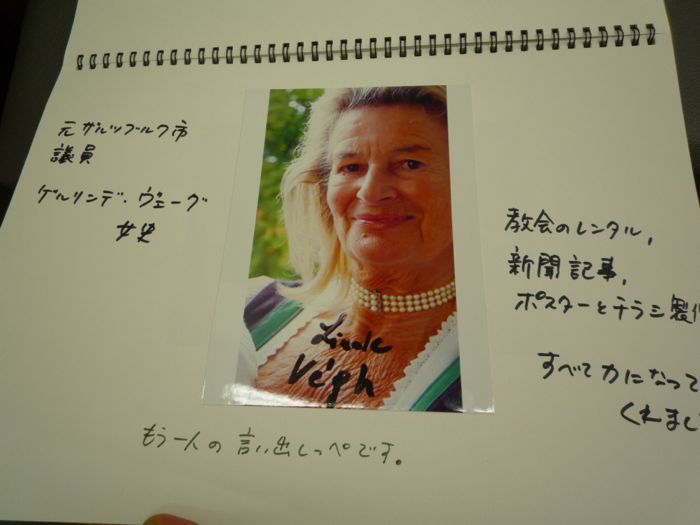 元ザルツブルク市
議員
ゲルリンデ・ヴェーグ
女史
Linde
Végh
教会のレンタル,
新聞記事,
ポスターとチラシ製作
すべて力になって
くれまし
もう一人の言い出しっぺです。